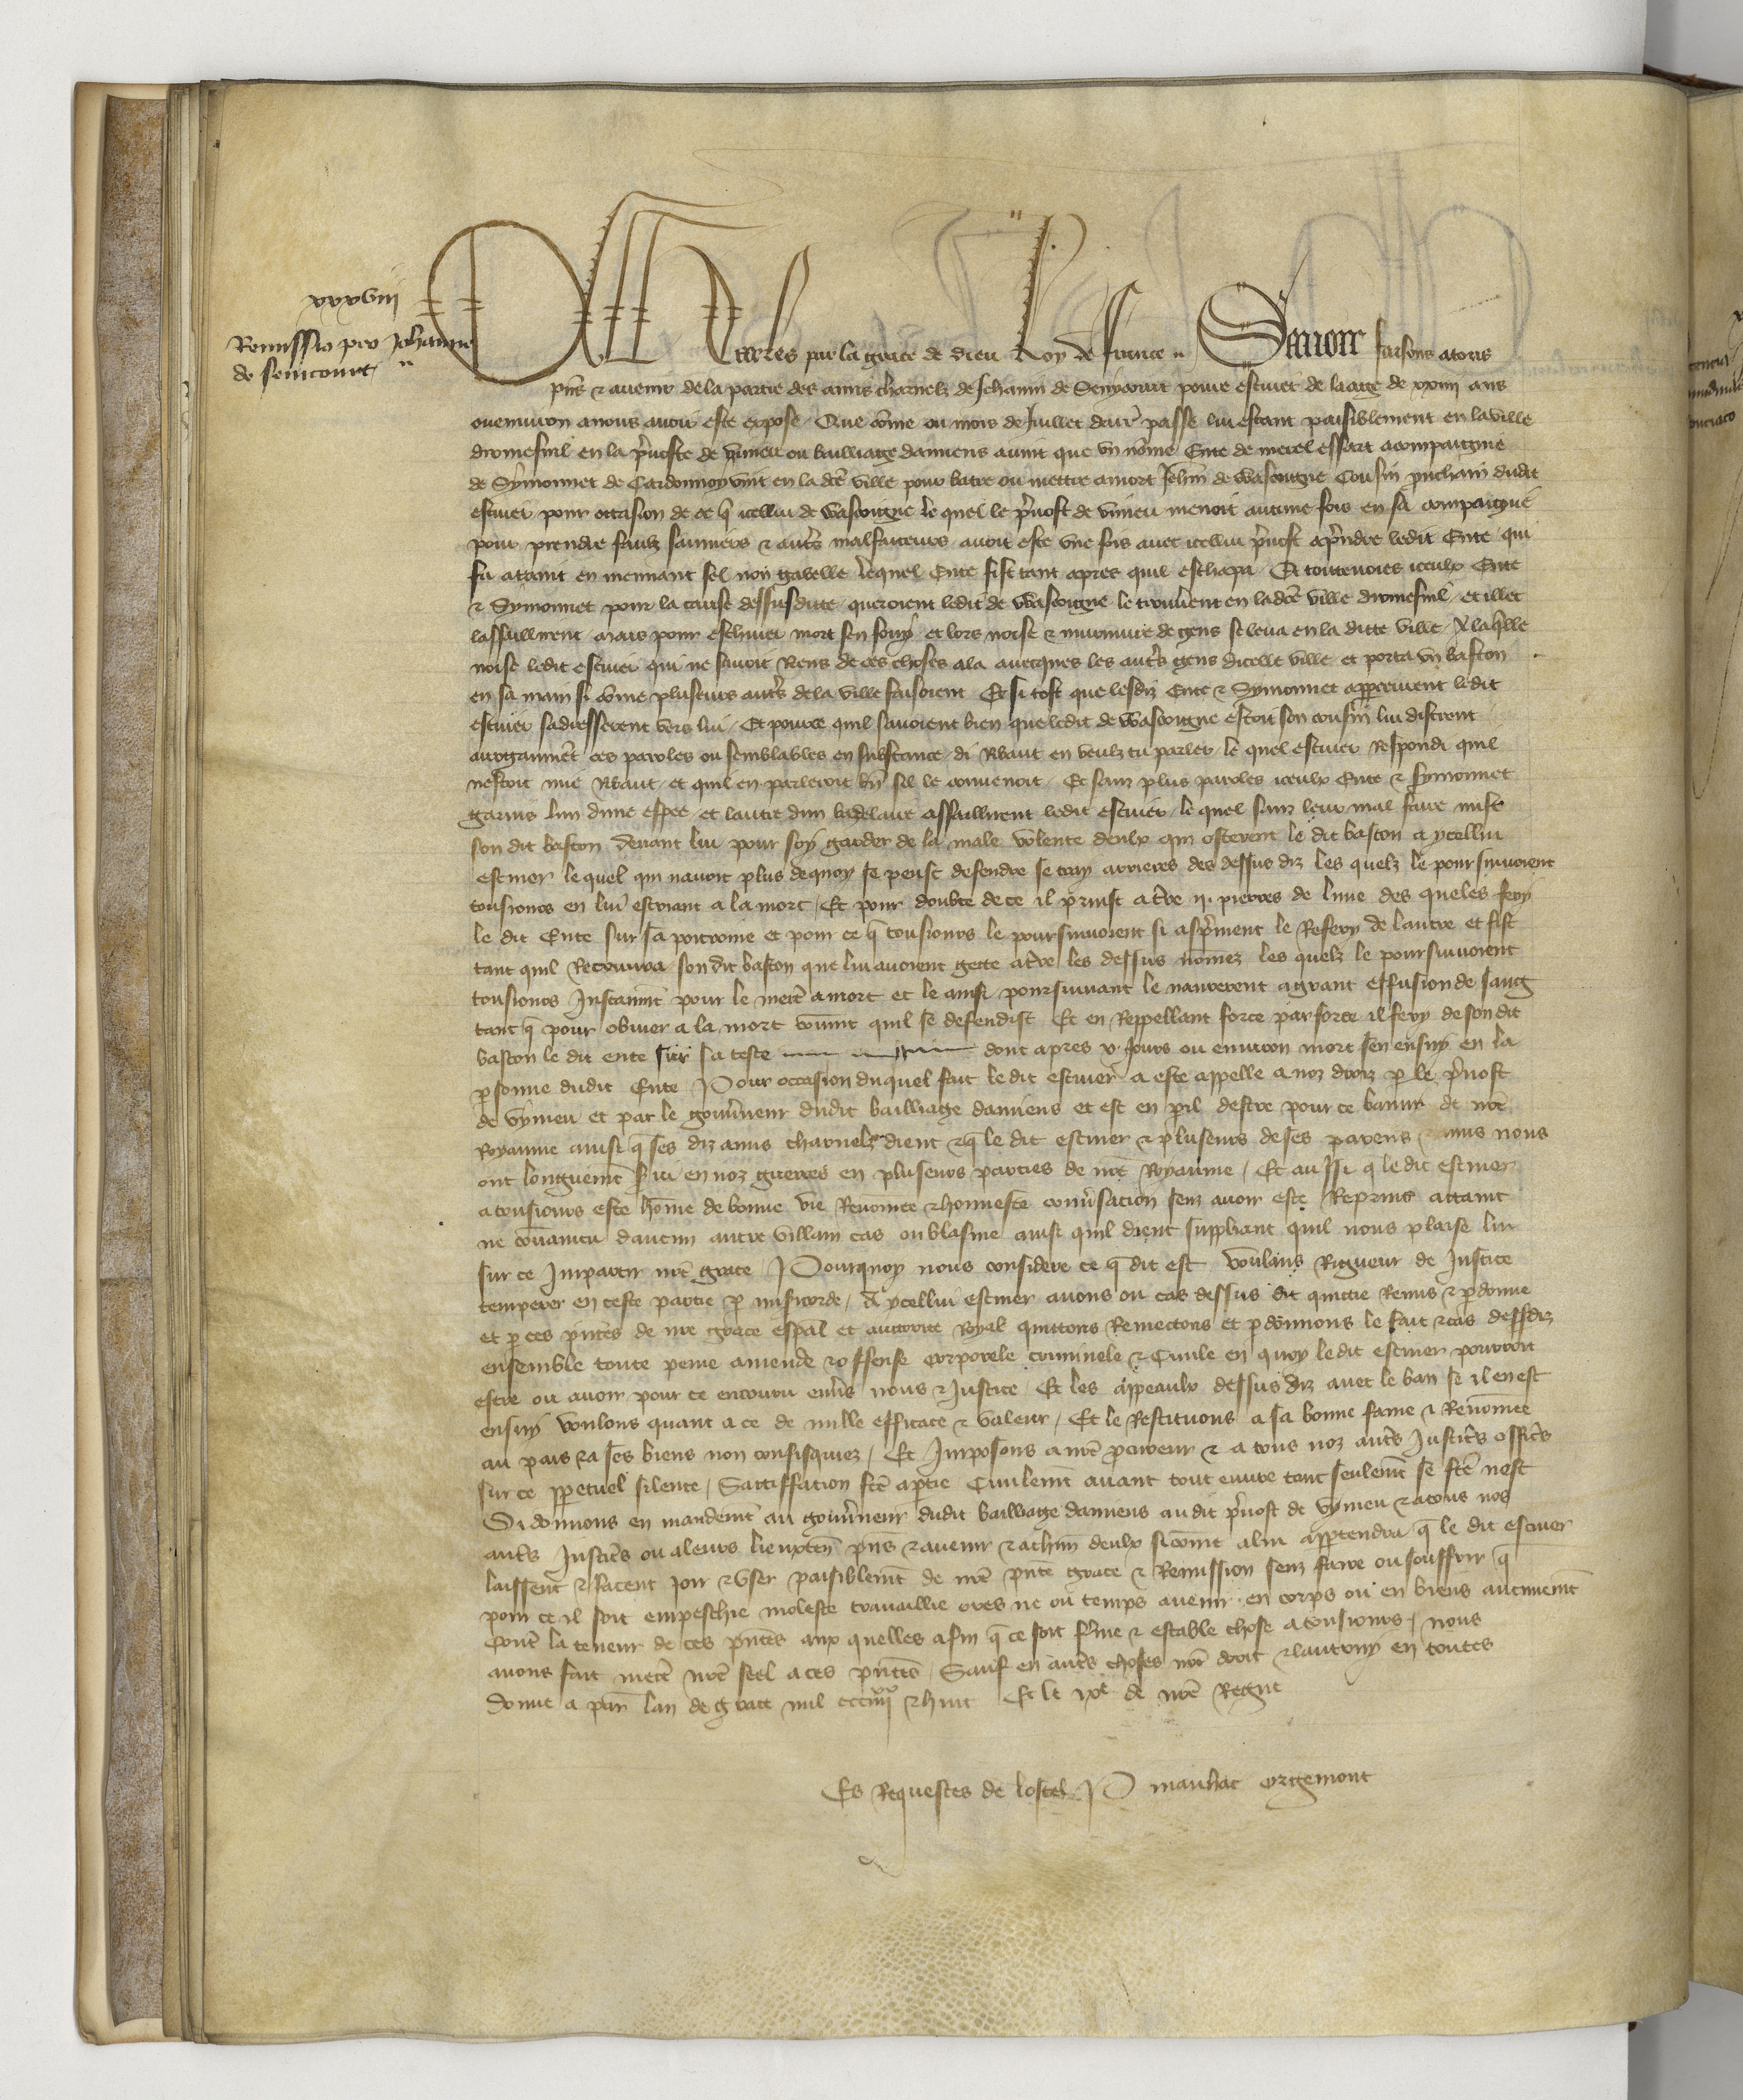 xxxviij
Remissio pro Johanne
de senicourt
Charles par la grace de dieu Roy de france Savoir faisons a tous
pñs & avenir de la partie des amis charnelz de Jehanin de Senycourt povre escuier de laage de xxiiij ans
ou environ a nous avoir este expose Que cõme ou mois de Juillet derr̃ passe lui estant paisiblement en la ville
dromesnil en la p̃voste de vimeu ou bailliage damiens avint que un nõme Ente de mesnel essart acompaignie
de Symonnet de Cardonnoy vint en la dc̃e ville pour batre ou mettre a mort Jehñ de Wascoigne Cousin prochain dudit
escuier pour occasion de ce q̃ icellui de Wascoigne le quel le p̃vost de vimeu menoit aucune fois en sa compaignie
pour prendre faulx sauniers & autr̃s malfaiteurs avoit este une fois avec icellui p̃vost a p̃ndre ledit Ente qui
fu ataint en menant sel non gabelle lequel Ente fist tant apres quil eschapa Et toutevoies iceulx Ente
& Symonnet pour la cause dessusdicte queroient ledit de Wascoigne le trouverent en ladc̃e ville dromesnil et illec
lassaillirent mais pour eschiver mort sen fouy et lors noise & murmure de gens se leva en la ditte ville A laq̃lle
noise ledit escuier qui ne savoit Riens de ces choses ala avecques les autr̃s gens dicelle ville et porta un baston
en sa main si cõme pluseurs autr̃s de la ville faisoient Et si tost que lesdiz Ente & Symonnet apperceurent ledit
escuier sadresserent vers lui Et pource quil savoient bien que ledit de Wascoigne estoit son cousin lui distrent
arrogaumẽt ces paroles ou semblables en substance di Ribaut en veulz tu parler le quel escuier Respondi quil
nestoit mie Ribaut et quil en parleroit bñ sil le convenoit Et sanz plus paroles iceulx Ente & symonnet
garnis lun dune espee et lautre dun badelaire assaillirent ledit escuier le quel sanz leur mal faire mist
son dit baston devant lui pour soy garder de la male volente deulx qui osterent le dit baston a ycellui
escuier lequel qui navoit plus dequoy se peust defendre se tray arrieres des dessus diz les quelz le poursuivoient
tousiours en lui escriant a la mort Et pour doubte de ce il prinst a tr̃e ij pierres de lune des queles fery
le dit Ente sur sa poitrine et pour ce q̃ tousiours le poursuivoient si asp̃ment le Refery de lautre et fist
tant quil Recouvra son dit baston que lui avoient gette a tr̃e les dessus nõmez les quelz le poursuivoient
tousiours Instanm̃t pour le mett̃ a mort et le ainsi poursuivant le navrerent a grant effusion de sang
tant q̃ pour obvier a la mort convint quil se defendist Et en Reppellant force par force il fery de son dit
baston le dit ente sur sa teste dont apres v Jours ou environ mort sen ensuy en la
p̃sonne dudit Ente Pour occasion duquel fait le dit escuier a este appelle a noz droiz p̱ le p̃vost
de Vymeu et par le gouv̉neur dudit bailliage damiens et est en p̱il destre pour ce banni de nr̃e
Royaume ainsi q̃ ses diz amis charnelz dient & q̃ le dit escuier & pluseurs de ses parens & amis nous
ont longuemt̃ s̃vi en noz guerres en pluseurs parties de nr̃e Royaume Et aussi q̃ le dit escuier
a tousiours este hõme de bonne vie Renõmee & honneste conv̉sacion senz avoir este Reprins attaint
ne convaincu daucun autre villain cas ou blasme ainsi quil dient suppliant quil nous plaise lui
sur ce Impartir nr̃e grace Pourquoy nous considere ce q̃ dit est Voulans Rigueur de Justice
temperer en ceste partie p̱ mis̃icorde A ycellui escuier avons ou cas dessus dit quictie Remis & p̱donne
et p̱ ces p̃ntes de nr̃e grace esp̃al et auctorite Royal quittons Remectons et p̱donnons le fait & cas dessdiz
ensemble toute peine amende & offense corporele criminele & Civile en quoy ledit escuier pourroit
estre ou avoir pour ce encouru env̉s nous & Justice Et les appeaulx dessus diz avec le ban se il en est
ensuy voulons quant a ce de nulle efficace & valeur Et le Restituons a sa bonne fame & Renõmee
au pais & a ses biens non confisquiez Et Imposons a nr̃e p̱cureur & a tous noz autr̃s Justic̃s offic̃s
sur ce p̱petuel silence Sattisffation fc̃e a p̱tie Civilemt̃ avant tout euvre tant seulemt̃ se fc̃e nest
Si donnons en mandemt̃ au gouv̉neur dudit bailliage damiens au dit p̃vost de Vymeu & a tous nos
autr̃s Justic̃s ou a leurs lieuxten̄ p̃ns & avenir & a chũn deulx si cõme a lui app̱tendra q̃ le dit escuier
laissent & facent joir & user paisiblemt̃ de nr̃e p̃nte grace & Remission senz faire ou souffrir q̃
pour ce il soit empeschie moleste travaillie ores ne ou temps avenir en corps ou en biens aucunemt̃
contr̃ la teneur de ces p̃ntes aux quelles afin q̃ ce soit ferme & estable chose a tousiours nous
avons fait mett̃ nr̃e seel a ces p̃ntes Sauf en autr̃s choses nr̃e droit & lautruy en toutes
donne a par̃ lan de grace mil ccciiijxx & huit Et le ixe de nr̃e Regne
Es Requestes de lostel P mauhac orgemont